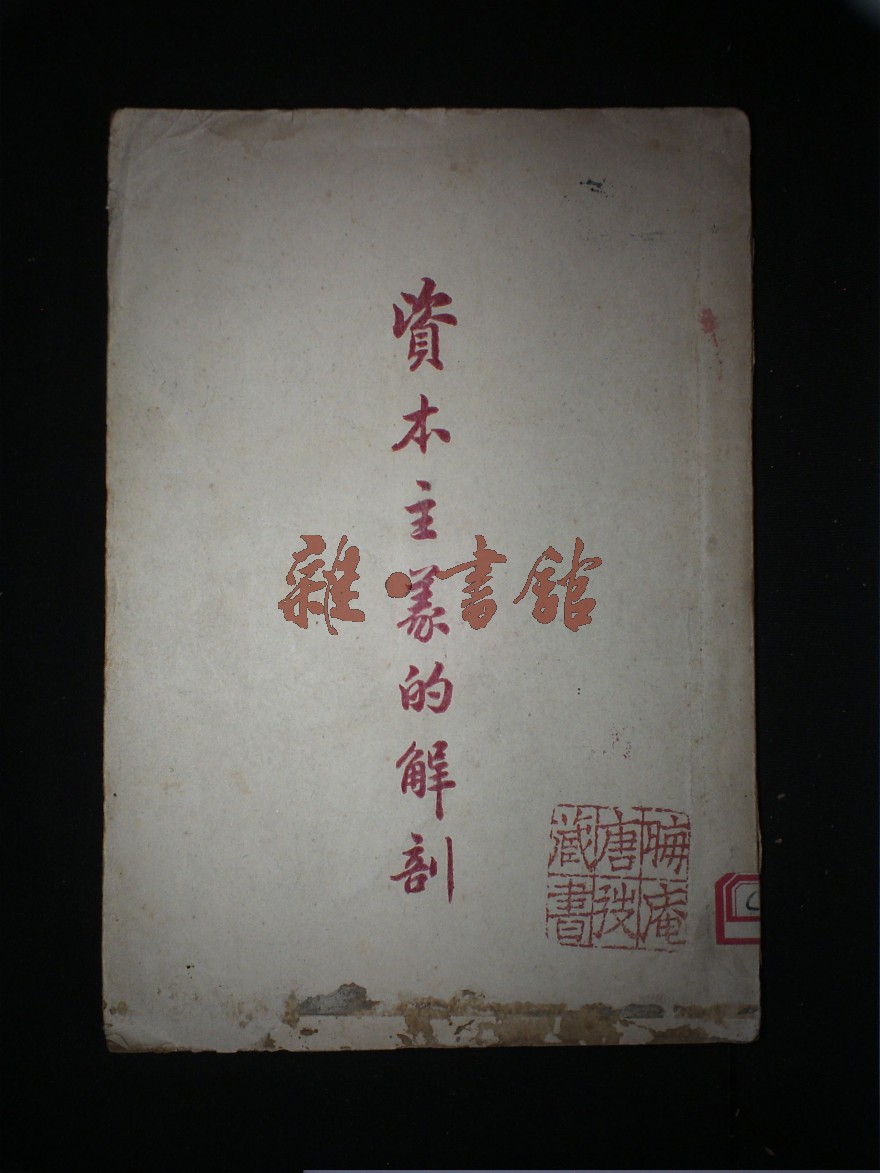 資本主義的解剖
雜·書館
晦庵
唐弢
藏書